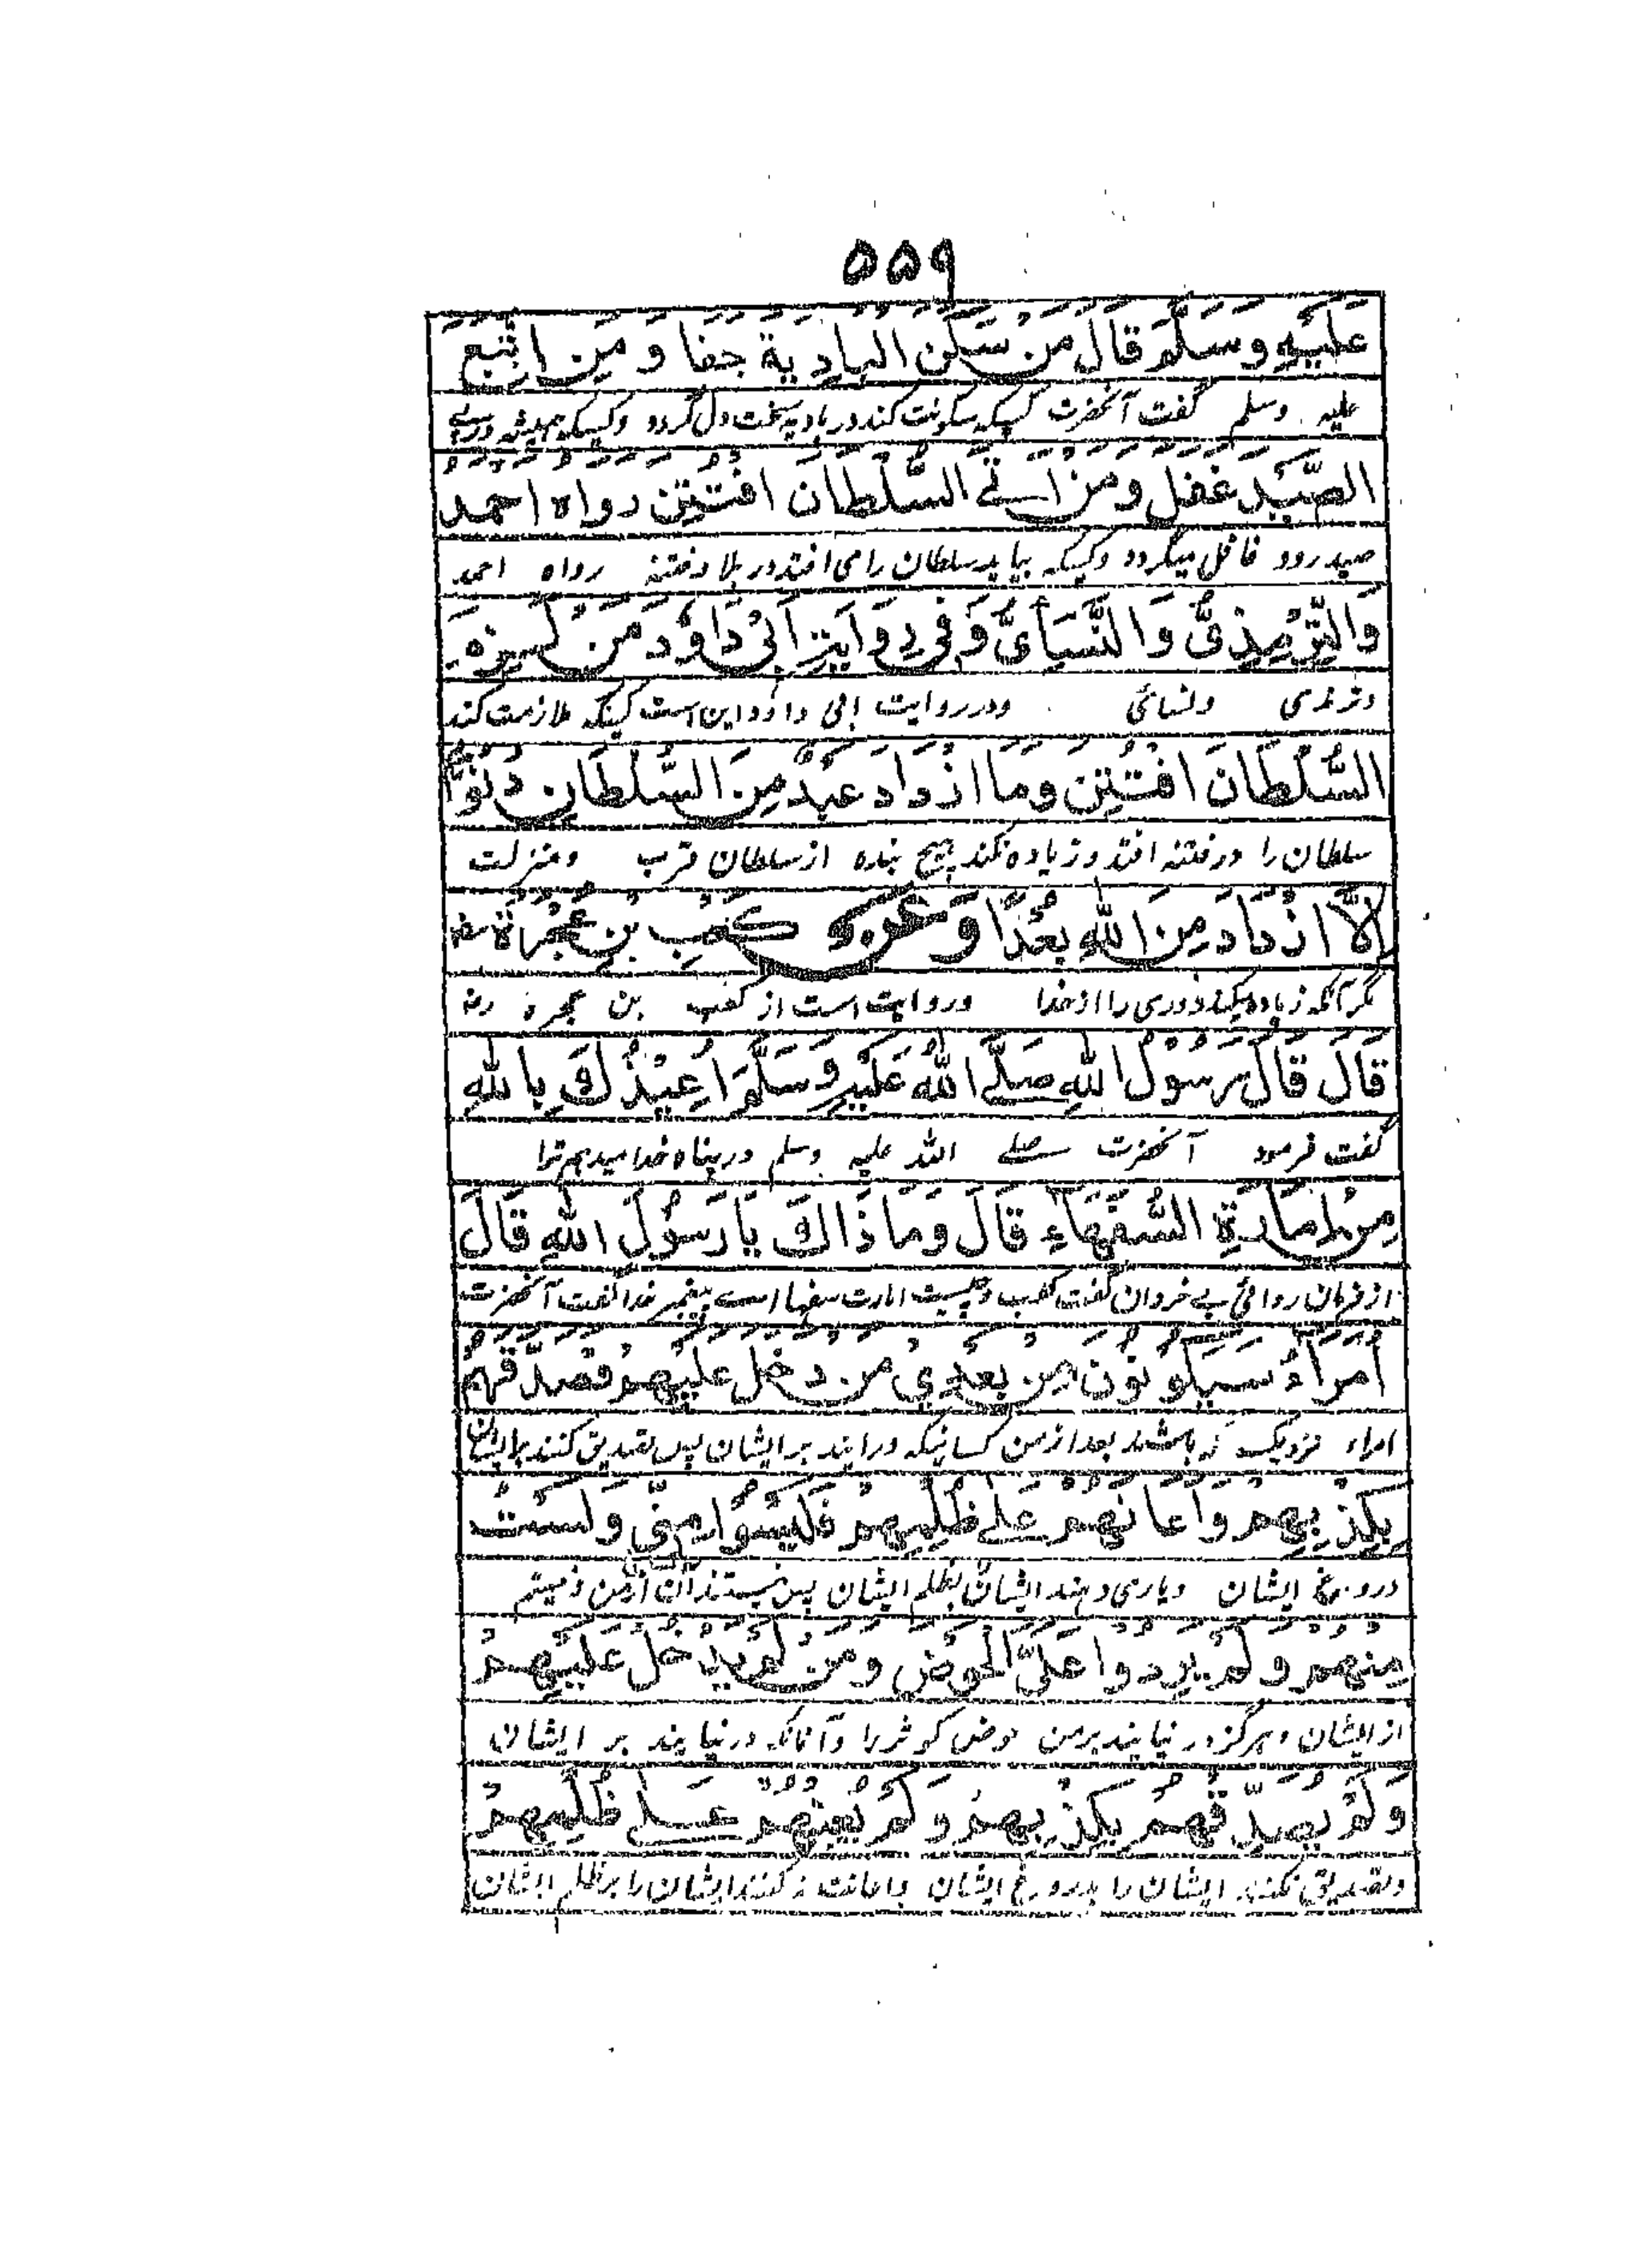 ۵۵۹
عَلَيْهِ وَسَلَّمَ قَالَ مَنْ سَكَنَ الْبَادِيَةَ جَفَا وَمَنِ اتَّبَعَ
علیه وسلم گفت آنحضرت کسیکه سکونت کند در بادیه سخت دل گردد وکسیکه همیشه در پے
الصَّيْدَ غَفَلَ وَمَنْ اَتَے السُّلْطَانَ افْتُتِنَ رواه احمد
صید رود غافل میگردد وکسیکه بیاید سلطان را می افتد در بلا وفتنه رواه احمد
وَالتِّرْمِذِيُّ وَالنَّسَائِيُّ وَفِي رِوَايَةِ اَبِيْ دَاوٗدَ مَنْ لَزِمَ
وترمذی ونسائی ودر روایت ابی داؤد این است کسیکه ملازمت کند
السُّلْطَانَ افْتُتِنَ وَمَا ازْدَادَ عَبْدٌ مِنَ السُّلْطَانِ دُنُوًّا
سلطان را در فتنه افتد وزیاده نکند هیچ بنده از سلطان قرب ومنزلت
اِلَّا ازْدَادَ مِنَ اللّٰهِ بُعْدًا وَعَنْ كَعْبِ بْنِ عُجْرَةَ رض
مگر آنکه زیاده میکند دوری را از خدا وروایت است از کعب بن عجره رض
قَالَ قَالَ رَسُوْلُ اللّٰهِ صَلَّے اللّٰهُ عَلَيْهِ وَسَلَّمَ اُعِيْذُكَ بِاللّٰهِ
گفت فرمود آنحضرت صلے الله علیه وسلم در پناه خدا میدهم ترا
مِنْ اِمَارَةِ السُّفَهَاءِ قَالَ وَمَا ذَاكَ يَا رَسُوْلَ اللّٰهِ قَالَ
از فرمان روائی بے خردان گفت کعب وچیست امارت سفها اے پیغمبر خدا گفت آنحضرت
اُمَرَاءُ سَيَكُوْنُوْنَ مِنْ بَعْدِيْ مَنْ دَخَلَ عَلَيْهِمْ فَصَدَّقَهُمْ
امراء نزدیک که باشند بعد از من کسانیکه در ایند بر ایشان پس تصدیق کنند ایشان
بِكِذْبِهِمْ وَاَعَانَهُمْ عَلٰے ظُلْمِهِمْ فَلَيْسُوْا مِنِّيْ وَلَسْتُ
دروغ ایشان ویاری دهند ایشان بظلم ایشان پس نیستند آن کسان از من ونیستم
مِنْهُمْ وَلَمْ يَرِدُوْا عَلَيَّ الْحَوْضَ وَمَنْ لَمْ يَدْخُلْ عَلَيْهِمْ
از ایشان وهرگز در نیایند بر من حوض کوثر را وآنانکه در نیایند بر ایشان
وَلَمْ يُصَدِّقْهُمْ بِكِذْبِهِمْ وَلَمْ يُعِنْهُمْ عَلٰے ظُلْمِهِمْ
وتصدیق نکنند ایشان را بدروغ ایشان واعانت نکنند ایشان را بر ظلم ایشان